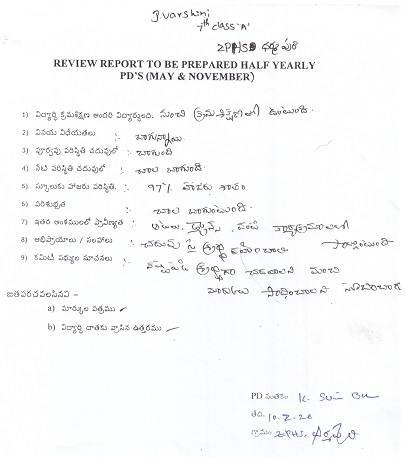 P.Varshini
7th class 'A'
ZPHS ధర్మపురి
REVIEW REPORT TO BE PREPARED HALF YEARLY
PD'S (MAY & NOVEMBER)
1) విద్యార్థి క్రమశిక్షణ అందరి విద్యార్థులది. మంచి క్రమశిక్షణతో ఉంటుంది.
2) వినయ విధేయతలు :- బాగున్నాయి
3) పూర్వపు పరిస్థితి చదువులో :- బాగుంది
4) నేటి పరిస్థితి చదువులో :- చాల బాగుంది.
5) స్కూలుకు హాజరు పరిస్థితి. :- 97% హాజరు శాతం
6) పరిశుభ్రత :- చాల బాగుంటుంది.
7) ఇతర అంశములలో ప్రావీణ్యత :- ఆటలు, డ్యాన్స్, వంటి కార్యక్రమాలలో
8) అభిప్రాయాలు / సలహాలు :- చదువు పై శ్రద్ధ పాల్గొంటుంది
9) కమిటీ సభ్యుల సూచనలు :- శ్రద్ధగా చదవాలని మంచి
మార్కులు సాధించాలని
జతపరచవలసినవి –
a) మార్కుల పత్రము ✓
b) విద్యార్థి దాతకు వ్రాసిన ఉత్తరము ✓
PD సంతకం
తేది. 10-2-20
గ్రామం ZPHS, ధర్మపురి